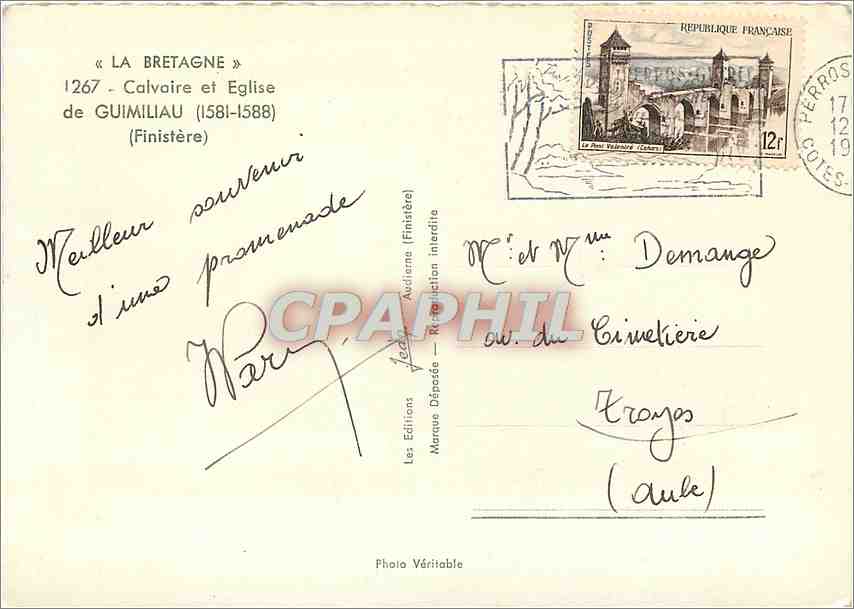 « LA BRETAGNE »
1267 - Calvaire et Eglise
de GUIMILIAU (1581-1588)
(Finistère)
Meilleur souvenir
d'une promenade
Les Editions Jean Audierne (Finistère)
Marque Déposée — Reproduction interdite
REPUBLIQUE FRANÇAISE
POSTES
Le Pont Valentré (Cahors)
12F
PERROS
17
12
19
COTES-
Mr et Mme Demange
av. du Cimetière
Troyes
(Aube)
CPAPHIL
Photo Véritable